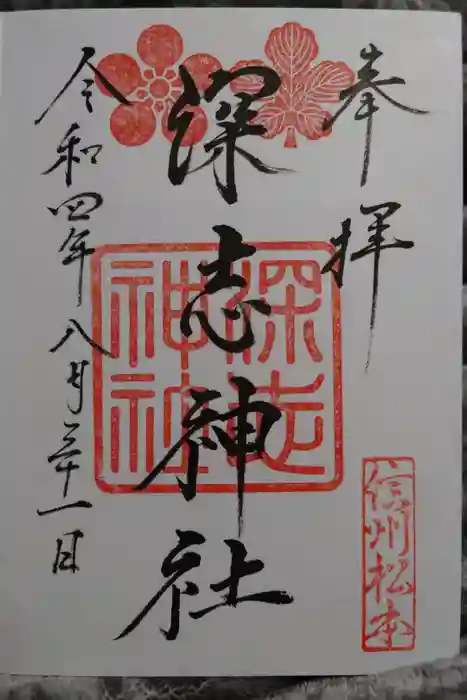 奉拝
信州松本
深志神社
深志神社
令和四年八月三十一日